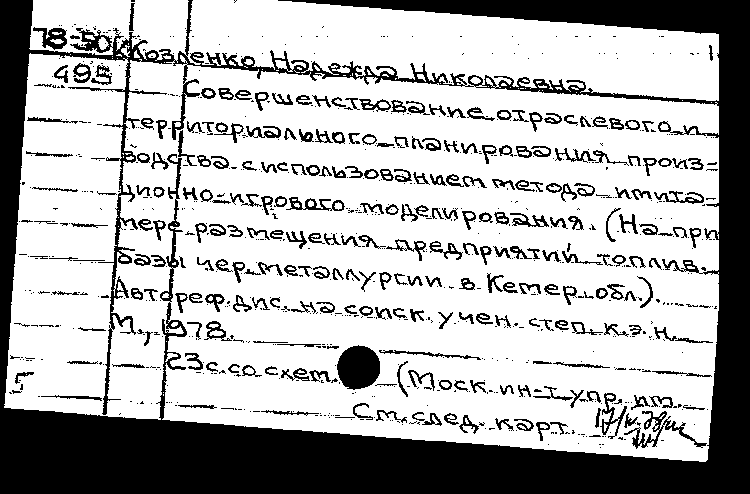 78-50
Козленко, Надежда Николаевна.
495
Совершенствование отраслевого и
территориального планирования произ-
водства с использованием метода имита-
ционно-игрового моделирования. (На при
мере размещения предприятий топлив.
базы чер. металлургии в Кемер. обл.).
Автореф. дис. на соиск. учен. степ. к.э.н.
М., 1978.
23 с. со схем. (Моск. ин-т упр. им.
5
См. след. карт.